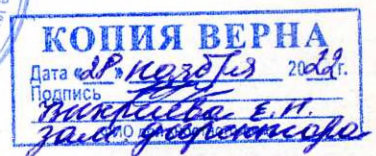 КОПИЯ ВЕРНА
Дата «28» ноября 2022 г.
Подпись
Е.Н.
зам. директора